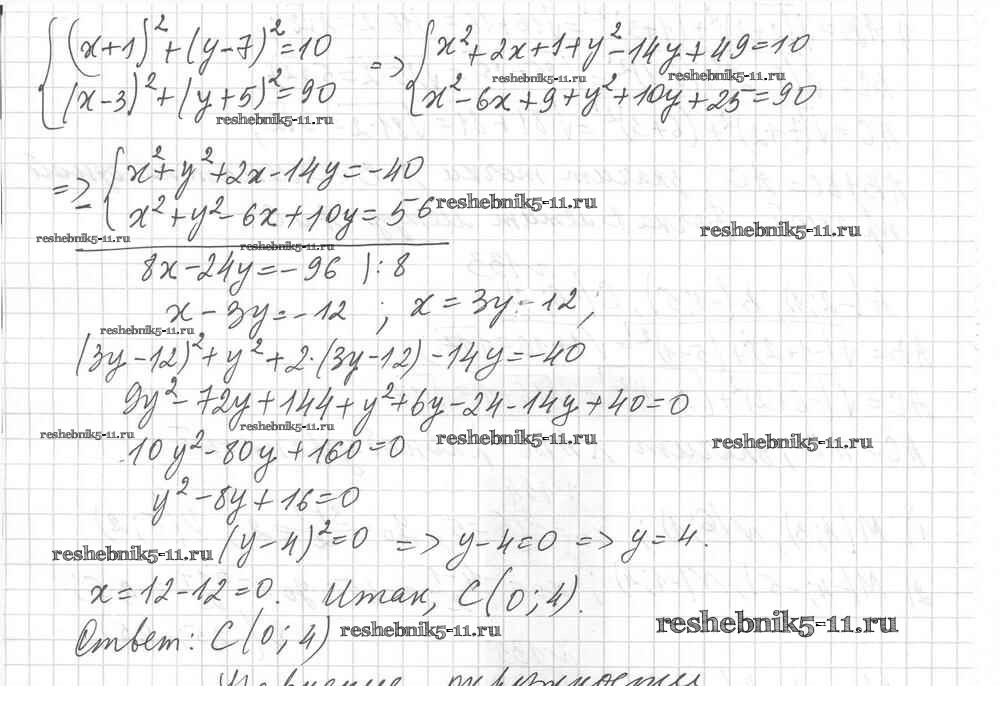 {(x+1)²+(y-7)²=10 => {x²+2x+1+y²-14y+49=10
reshebnik5-11.ru reshebnik5-11.ru
(x-3)²+(y+5)²=90 x²-6x+9+y²+10y+25=90
reshebnik5-11.ru
=> {x²+y²+2x-14y=-40
- x²+y²-6x+10y=56 reshebnik5-11.ru
reshebnik5-11.ru
reshebnik5-11.ru reshebnik5-11.ru
8x-24y=-96 |:8
x-3y=-12 ; x=3y-12;
reshebnik5-11.ru
(3y-12)²+y²+2·(3y-12)-14y=-40
9y²-72y+144+y²+6y-24-14y+40=0
reshebnik5-11.ru reshebnik5-11.ru reshebnik5-11.ru reshebnik5-11.ru
10y²-80y+160=0
y²-8y+16=0
reshebnik5-11.ru (y-4)²=0 => y-4=0 => y=4.
x=12-12=0. Итак, C(0;4).
Ответ: C(0;4) reshebnik5-11.ru reshebnik5-11.ru